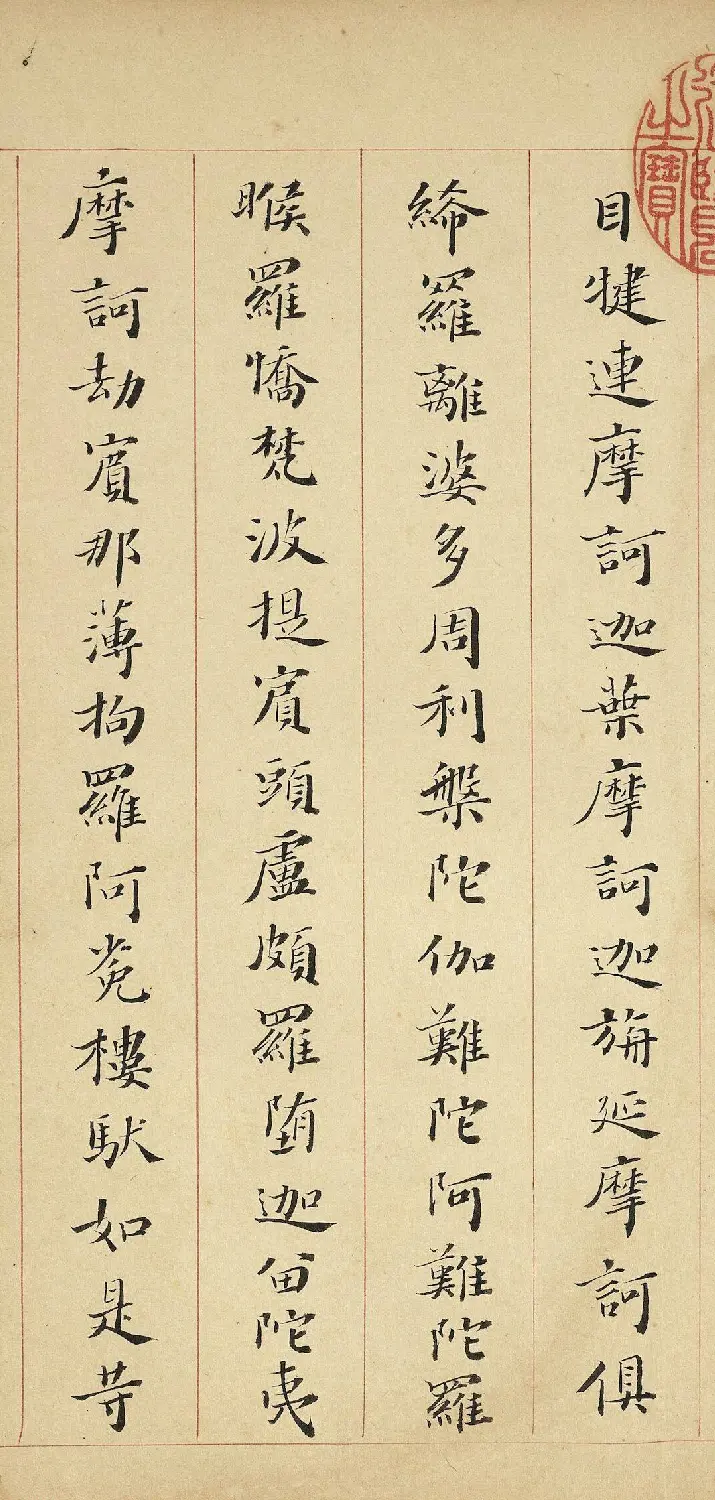 目犍連摩訶迦葉摩訶迦旃延摩訶俱
絺羅離婆多周利槃陀伽難陀阿難陀羅
睺羅憍梵波提賔頭盧頗羅堕迦留陀夷
摩訶劫賔那薄拘羅阿㝹樓馱如是等